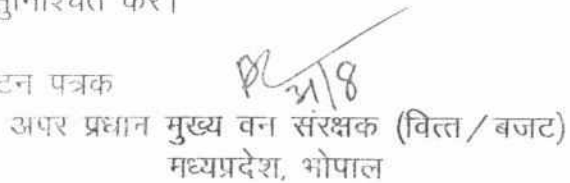 सुनिश्चित करें।
टन पत्रक
अपर प्रधान मुख्य वन संरक्षक (वित्त/बजट)
मध्यप्रदेश, भोपाल